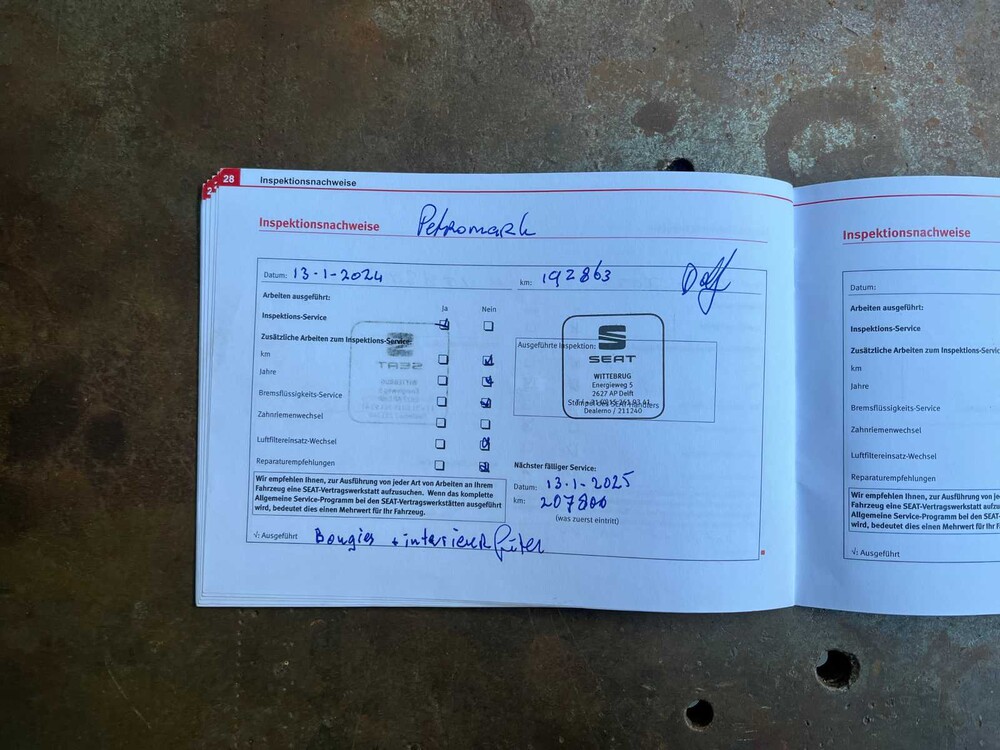 28 Inspektionsnachweise
Inspektionsnachweise Petromark
Datum: 13-1-2024 km: 192863
Arbeiten ausgeführt:
Ja Nein
Inspektions-Service
Zusätzliche Arbeiten zum Inspektions-Service:
km
Jahre
Bremsflüssigkeits-Service
Zahnriemenwechsel
Luftfiltereinsatz-Wechsel
Reparaturempfehlungen
Wir empfehlen Ihnen, zur Ausführung von jeder Art von Arbeiten an Ihrem
Fahrzeug eine SEAT-Vertragswerkstatt aufzusuchen. Wenn das komplette
Allgemeine Service-Programm bei den SEAT-Vertragswerkstätten ausgeführt
wird, bedeutet dies einen Mehrwert für Ihr Fahrzeug.
√: Ausgeführt Bougies + interieur filter
Ausgeführte Inspektion:
SEAT
WITTEBRUG
Energieweg 5
2627 AP Delft
Dealerno / 211240
Nächster fälliger Service:
Datum: 13-1-2025
km: 207800
(was zuerst eintritt)
Inspektionsnachweise
Datum:
Arbeiten ausgeführt:
Inspektions-Service
Zusätzliche Arbeiten zum Inspektions-Servic
km
Jahre
Bremsflüssigkeits-Service
Zahnriemenwechsel
Luftfiltereinsatz-Wechsel
Reparaturempfehlungen
Wir empfehlen Ihnen, zur Ausführung von je
Fahrzeug eine SEAT-Vertragswerkstatt aufzu
Allgemeine Service-Programm bei den SEAT-
wird, bedeutet dies einen Mehrwert für Ihr F
√: Ausgeführt